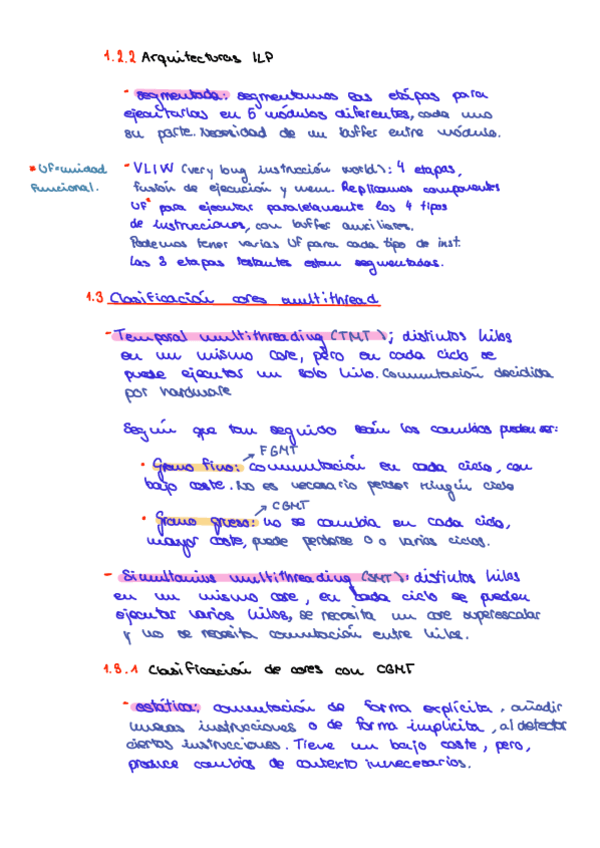 1.2.2 Arquitecturas ILP
- segmentada: segmentamos las etapas para
ejecutarlas en 5 módulos diferentes, cada uno
su parte. Necesidad de un buffer entre módulo.
* UF=unidad
Funcional.
- VLIW (very long instrucción world): 4 etapas,
fusión de ejecución y mem. Replicamos componentes
UF* para ejecutar paralelamente los 4 tipos
de instrucciones, con buffer auxiliares.
Podemos tener varias UF para cada tipo de inst.
Las 3 etapas restantes estan segmentadas.
1.3 Clasificación cores multithread
- Temporal multithreading (TMT); distintos hilos
en un mismo core, pero en cada ciclo se
puede ejecutar un solo hilo. Conmutación decidida
por hardware
Según que tan seguido sean los cambios pueden ser:
FGMT
• Grano fino: conmutación en cada ciclo, con
bajo coste. No es necesario perder ningún ciclo
CGMT
• Grano grueso: no se cambia en cada ciclo,
mayor coste, puede perderse 0 o varios ciclos.
- Simultanius multithreading (SMT): distintos hilos
en un mismo core, en cada ciclo se pueden
ejecutar varios hilos, se necesita un core superescalar
y no se necesita conmutación entre hilos.
1.3.1 Clasificación de cores con CGMT
- estática: conmutación de forma explícita, añadir
nuevas instrucciones o de forma implícita, al detectar
ciertas instrucciones. Tiene un bajo coste, pero,
produce cambios de contexto innecesarios.